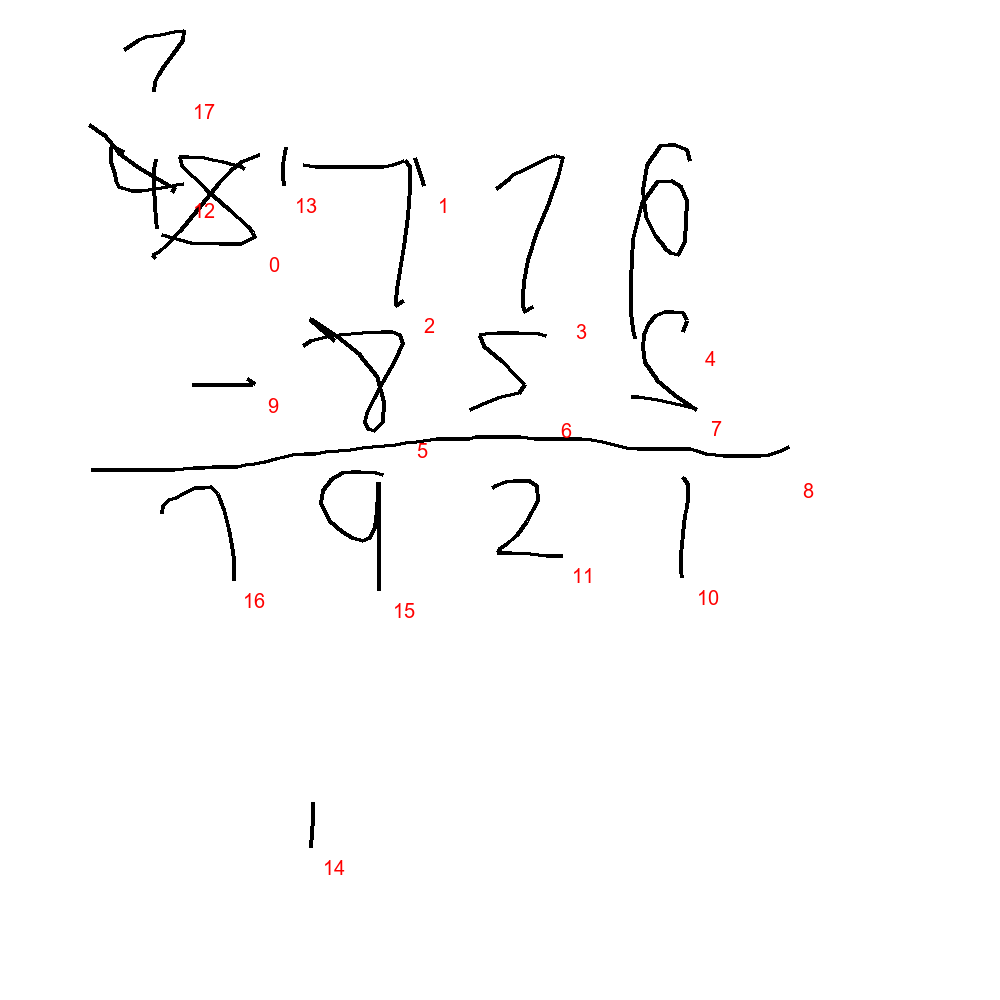 7
17
4 8 1 7 7 6
12 13 1
0
2 3 4
- 8 5 5
9 5 6 7
8
7 9 2 1
16 15 11 10
1
14